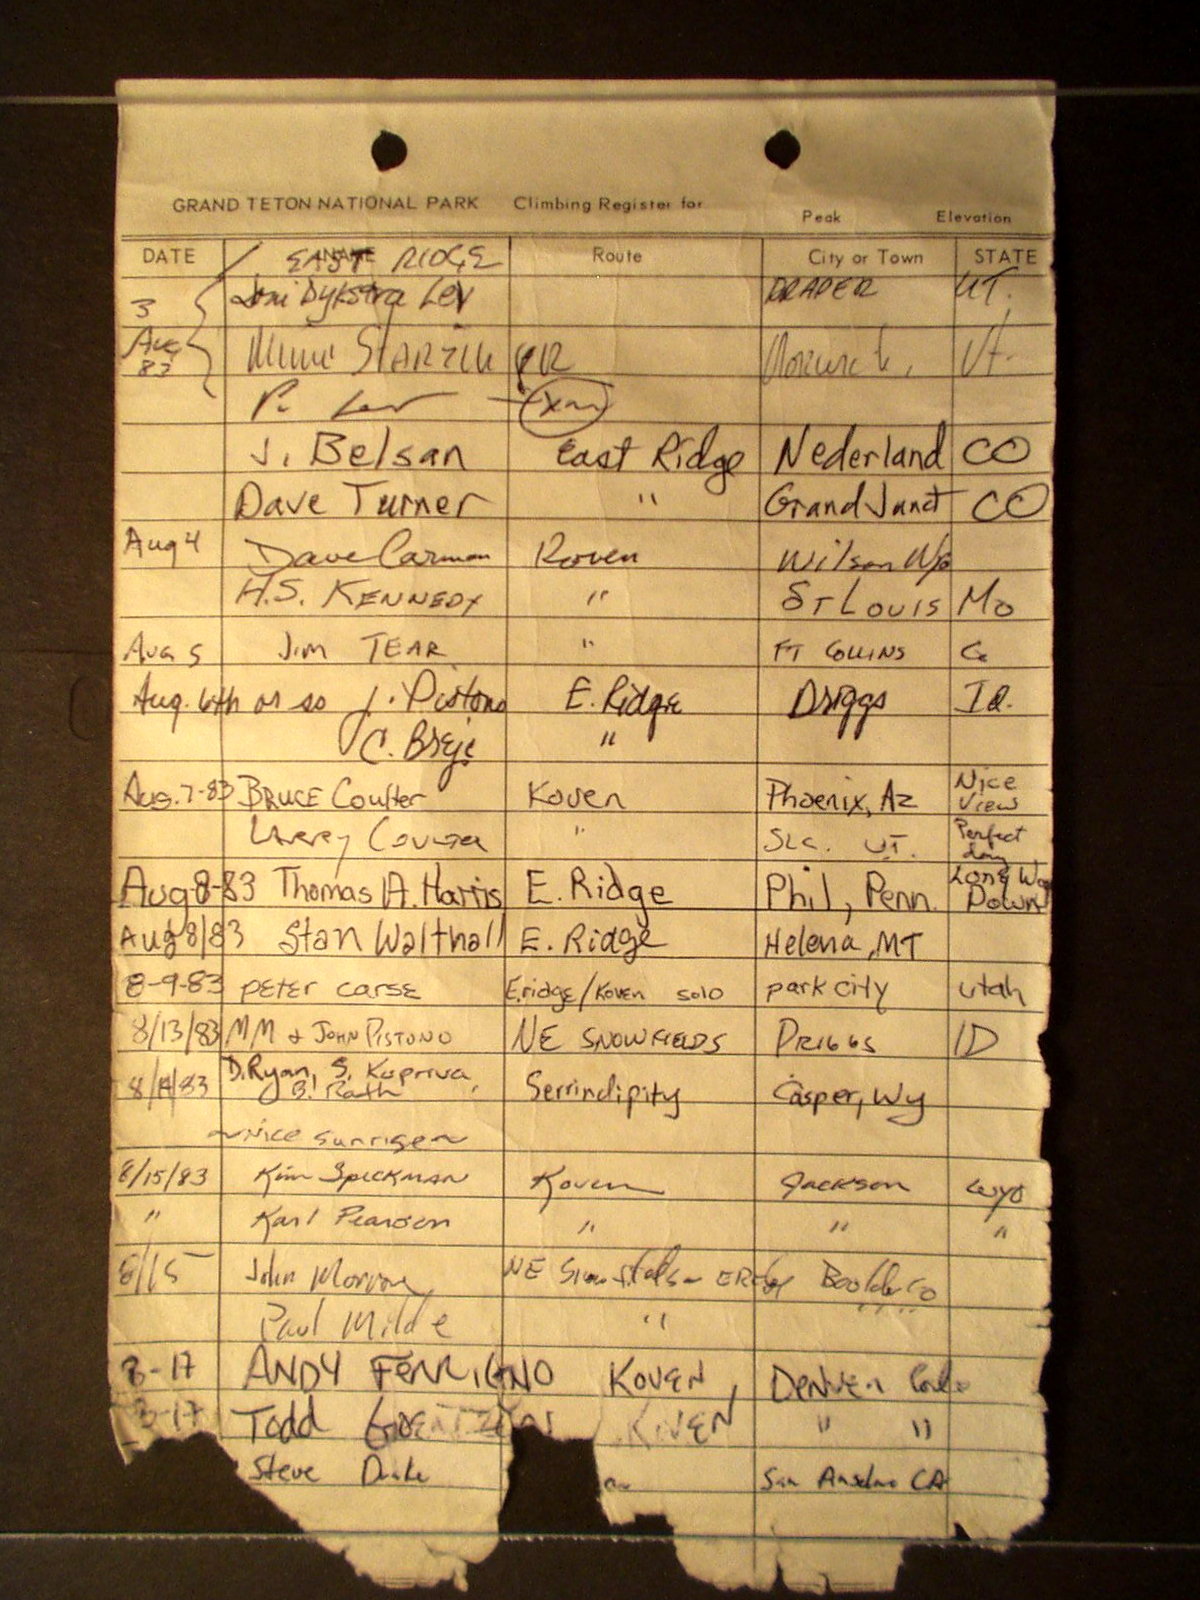 GRAND TETON NATIONAL PARK Climbing Register for
Peak Elevation
DATE NAME Route City or Town STATE
EAST RIDGE
3 Dykstra Lev DRAPER UT.
Aug 83 STARTIN UR Norwich, Vt.
P. Lev
J. Belsan East Ridge Nederland CO
Dave Turner " Grand Junct CO
Aug 4 Dave Carman Koven Wilson Wyo
H.S. KENNEDY " ST LOUIS MO
Aug 5 Jim TEAR " FT COLLINS Co
Aug. 6th or so J. Pistono E. Ridge Driggs ID.
C. Breje "
Aug. 7-83 BRUCE Coulter Koven Phoenix, Az Nice View
LARRY " SLC. UT. Perfect day
Aug 8-83 Thomas A. Harris E. Ridge Phil, Penn. Long Way Down
Aug 8/83 Stan Walthall E. Ridge Helena, MT
8-9-83 PETER CARSE E.ridge/Koven solo park city Utah
8/13/83 MM & JOHN PISTONO NE SNOWFIELDS DRIGGS ID
8/14/83 D. Ryan, S. Kupriva, B. Rath Serrindipity Casper, Wy
~Nice sunrise~
8/15/83 Kim SPECKMAN Koven Jackson Wyo
" Karl Pearson " " "
8/15 John Morrow NE Snowfields ERidge Boulder Co
Paul Milde " " "
8-17 ANDY FERRIGNO KOVEN, DENVER Colo
8-17 Todd KOVEN " "
Steve San Anselmo CA